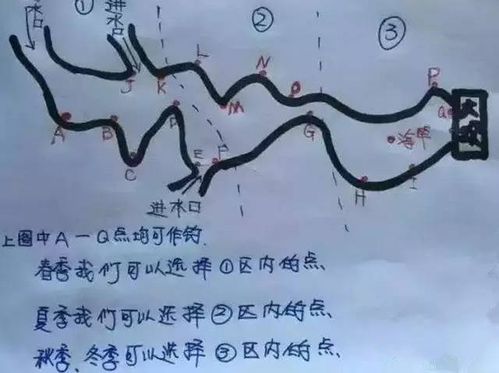 进水口
①
进水口
②
③
J
K
L
M
N
O
P
Q
大坝
海岸
A
B
C
D
E
F
G
H
I
进水口
上图中A一Q点均可作钓.
春季我们可以选择①区内的点、
夏季我们可以选择②区内的点、
秋季、冬季可以选择③区内的点、